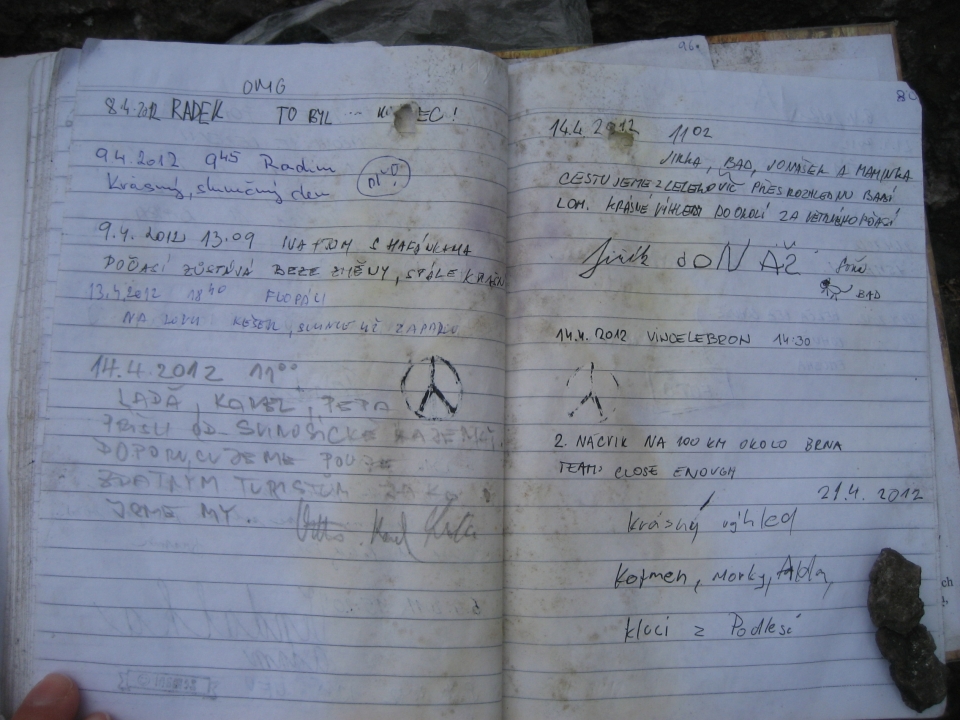 OMG
8.4.2012 RADEK TO BYL ... EC!
9.4.2012 9 45 Radim
Krásný, slunečný den
9.4.2012 13.09 IVA TOM S
POČASÍ ZŮSTÁVÁ BEZE ZMĚNY, STÁLE KRÁSN
13.4.2012 18 40
NA LOVU KEŠEK, SLUNCE UŽ ZAPADLO
14.4.2012 11 00
LAĎA, PEPA
PŘIŠLI OD SVINOŠICKÉ
DOPORUČUJEME POUZE
ZDATNÝM TURISTŮM
JSME MY.
Karel
80
14.4.2012 11 02
JIRKA, BAD, JONÁŠEK A MAMINKA
CESTUJEME Z LELEKOVIC PŘES ROZHLEDNU BABÍ
LOM. KRÁSNÉ VÝHLEDY DO OKOLÍ ZA VĚTRNÉHO POČASÍ
Jiřík
BAD
14.4.2012 VINCELEBRON 14:30
2. NÁCVIK NA 100 KM OKOLO BRNA
TEAM: CLOSE ENOUGH
21.4.2012
Krásný výhled
Kofmen, Morky,
kluci z Podlesí